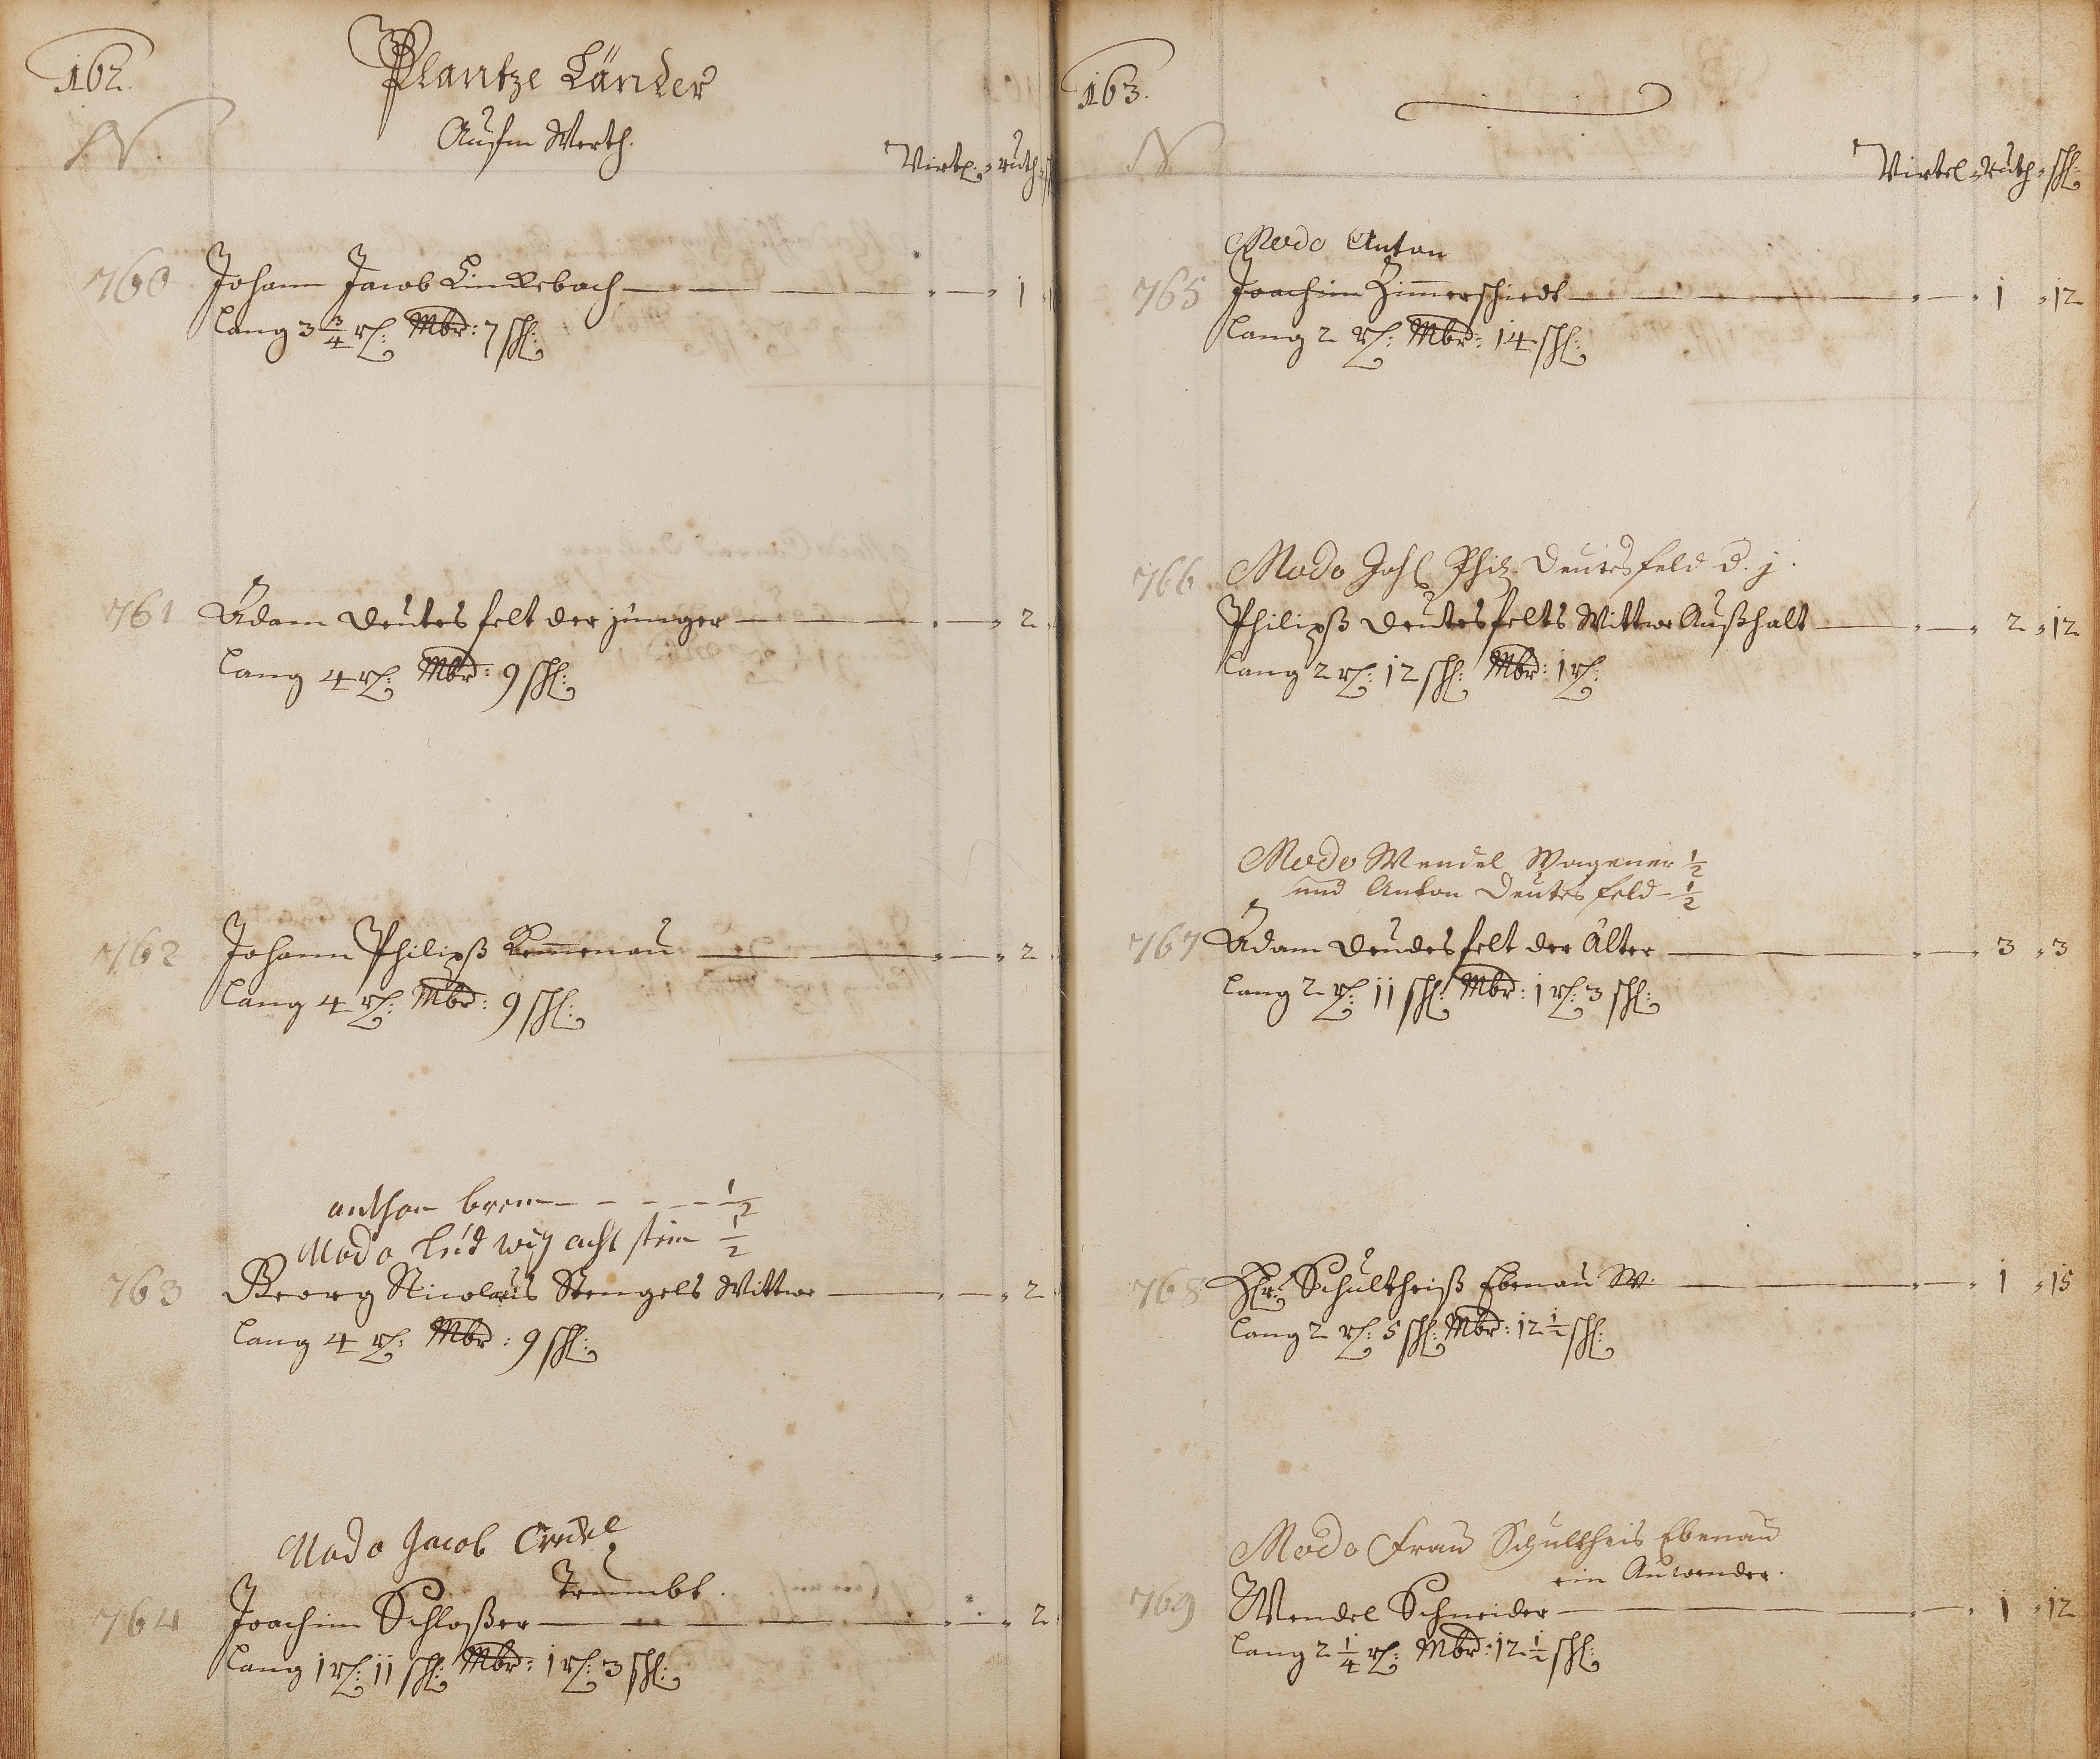 162.
Plantze Länder
Aufm Werth.
N.
Virtel " ruth "
760 Johann Jacob Linckebach " — " 1 "
lang 3 3/4 rh: Mbr: 7 sch:
761 Adam Deutesfelt der jünger " — " 2 "
lang 4 rh: Mbr: 9 sch:
762 Johann Philipß Kem̄enau " — " 2
lang 4 rh: Mbr: 9 sch:
anthon brem 1/2
Modo Ludwig achtstein 1/2
763 Georg Nicolaus Stengels Wittwe " — " 2
lang 4 rh: Mbr: 9 sch:
Modo Jacob Credel
Trumbt.
764 Joachim Schloßer " — " 2
lang 1 rh: 11 sch: Mbr: 1 rh: 3 sch:
163.
N.
Virtel " Ruth " sch:
Modo Anton
765 Joachim Zim̄erschiedt " — " 1 " 12
lang 2 rh: Mbr: 14 sch:
766 Modo Joh. Phil. Deutesfeld d. j.
Philipß Deutesfelts Wittwe Außhalt " — " 2 " 12
lang 2 rh: 12 sch: Mbr: 1 rh:
Modo Wendel Wagener 1/2
und Anton Deutesfeld 1/2
767 Adam Deudesfelt der Älter " — " 3 " 3
lang 2 rh: 11 sch: Mbr: 1 rh: 3 sch:
768 Hr: Schultheiß Ebenau W. " — " 1 " 15
lang 2 rh: 5 sch: Mbr: 12 1/2 sch:
Modo Frau Schultheis Ebenau
ein Anwender.
769 Wendel Schneider " — " 1 " 12
lang 2 1/4 rh: Mbr: 12 1/2 sch: